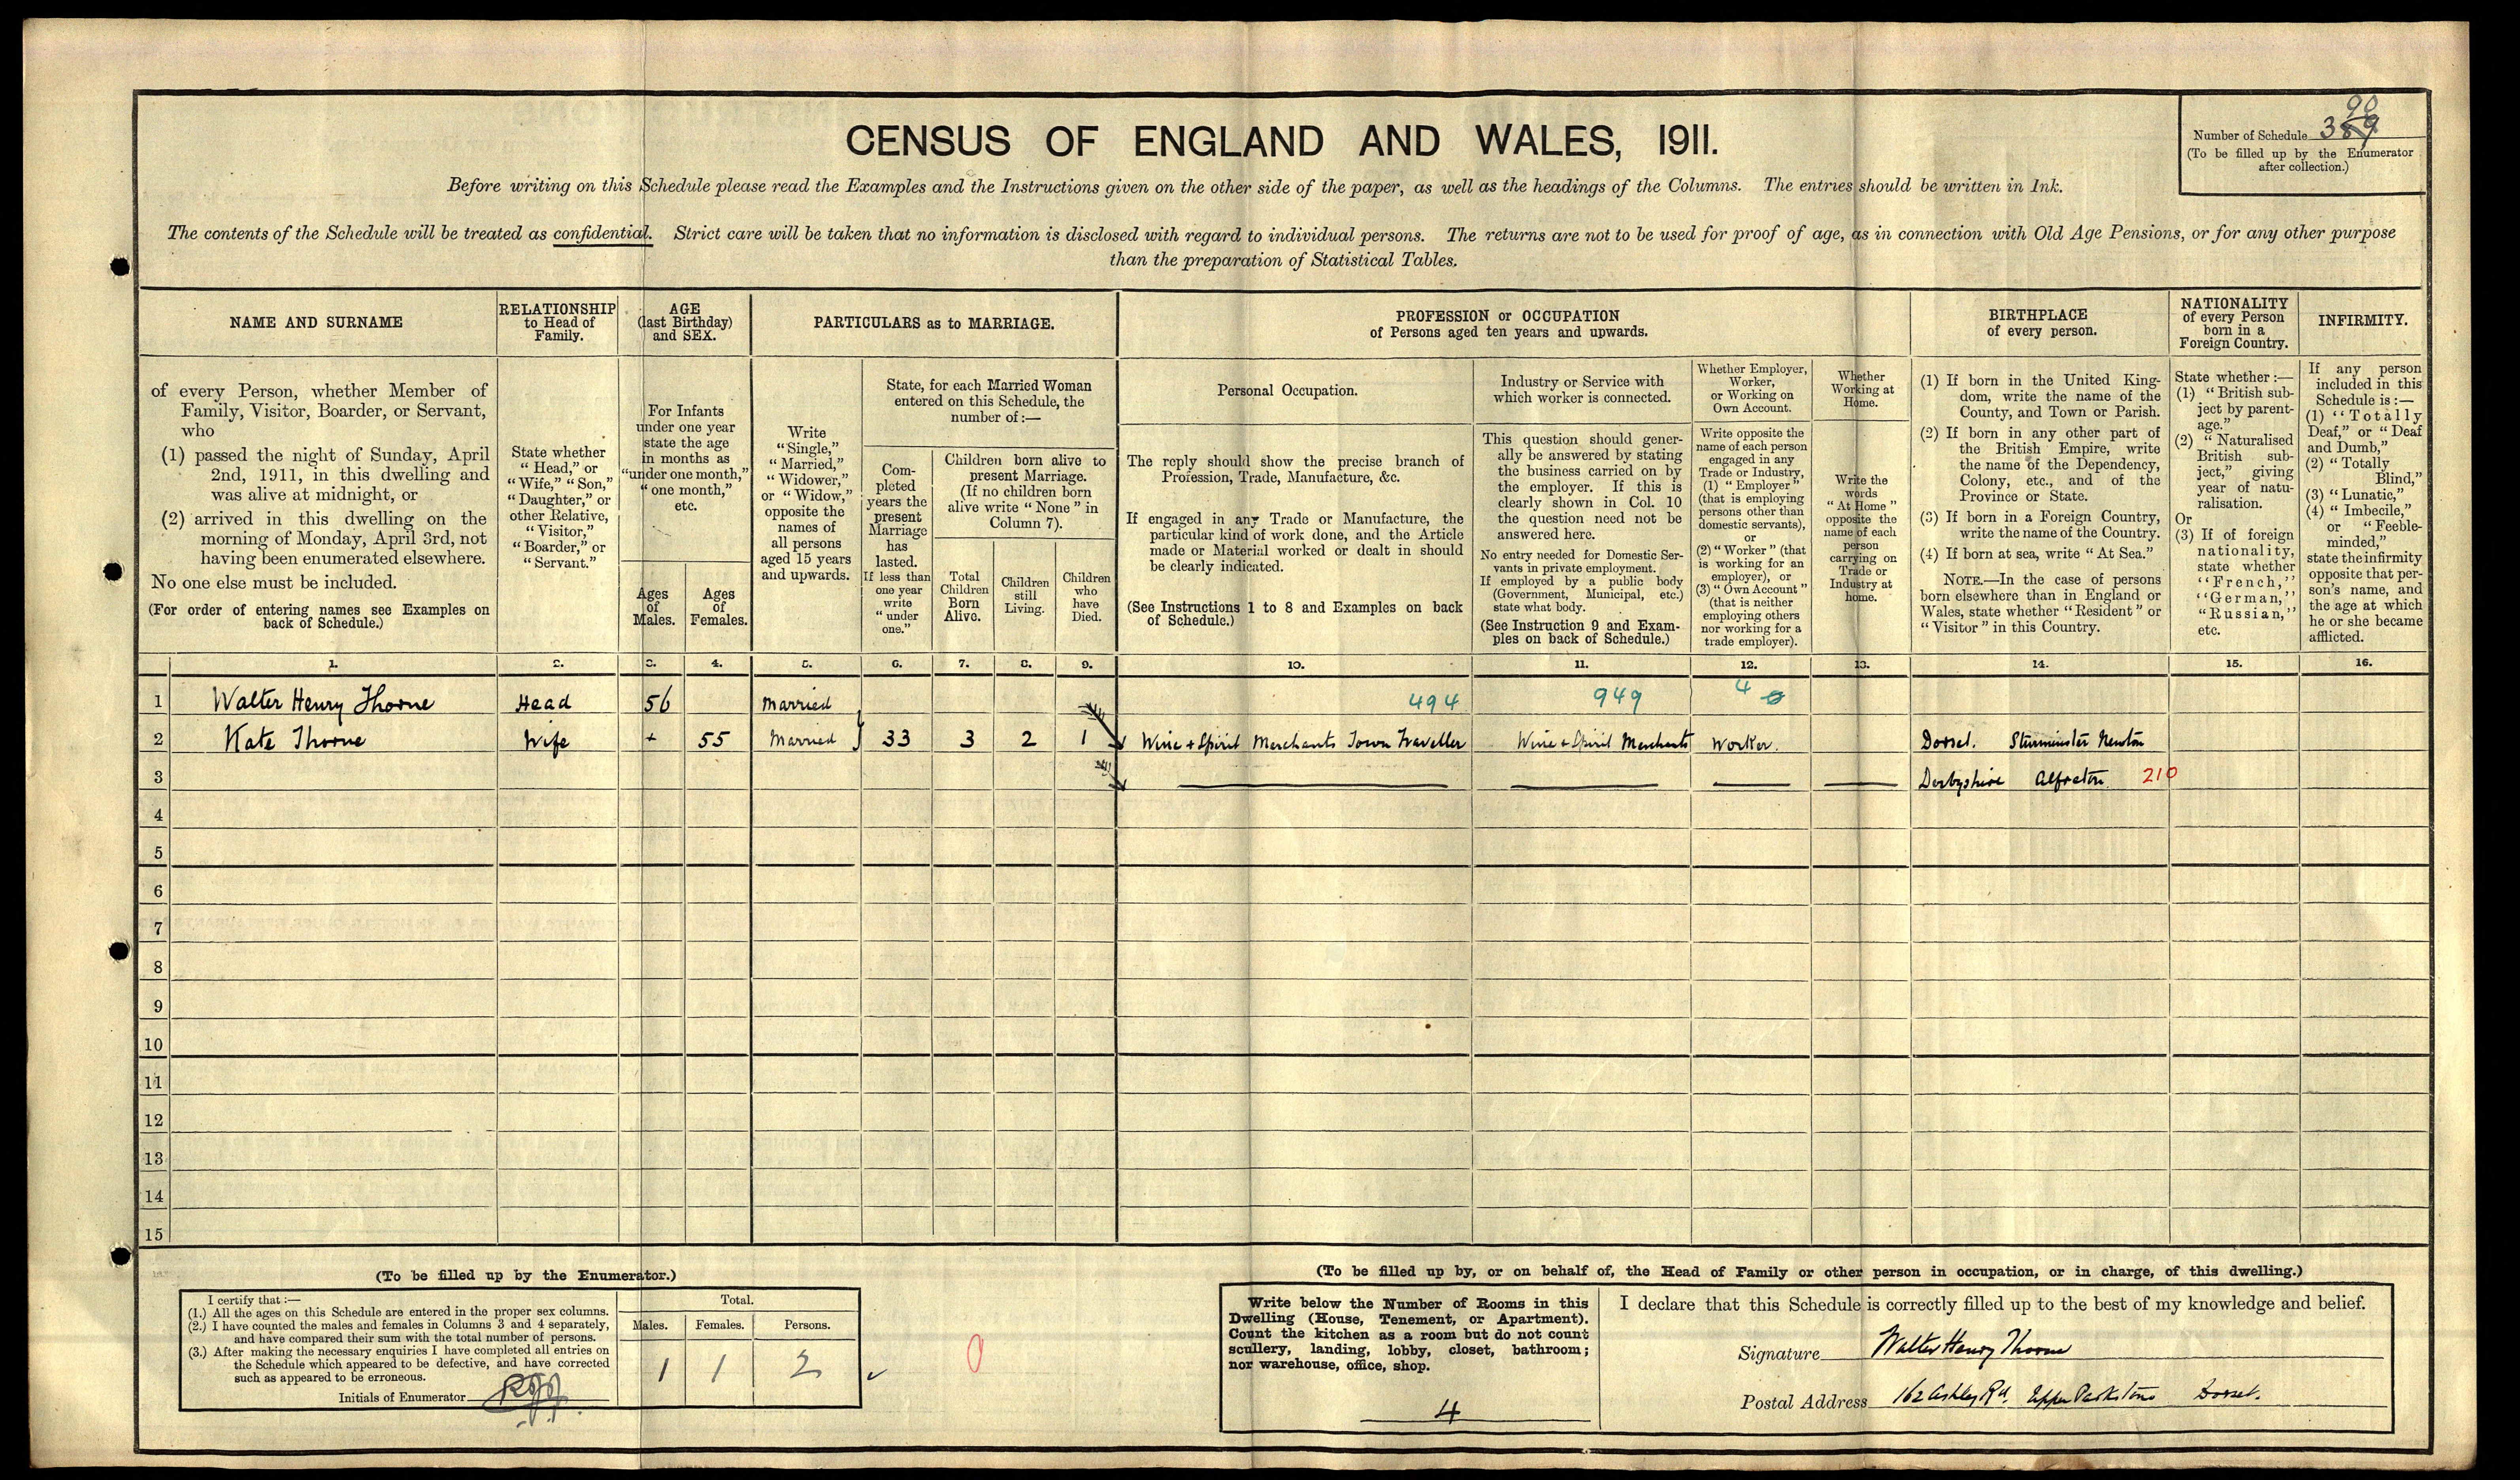 CENSUS OF ENGLAND AND WALES, 1911.
Number of Schedule 390
(To be filled up by the Enumerator
after collection.)
Before writing on this Schedule please read the Examples and the Instructions given on the other side of the paper, as well as the headings of the Columns. The entries should be written in Ink.
The contents of the Schedule will be treated as confidential. Strict care will be taken that no information is disclosed with regard to individual persons. The returns are not to be used for proof of age, as in connection with Old Age Pensions, or for any other purpose
than the preparation of Statistical Tables.
NAME AND SURNAME
of every Person, whether Member of
Family, Visitor, Boarder, or Servant,
who
(1) passed the night of Sunday, April
2nd, 1911, in this dwelling and
was alive at midnight, or
(2) arrived in this dwelling on the
morning of Monday, April 3rd, not
having been enumerated elsewhere.
No one else must be included.
(For order of entering names see Examples on
back of Schedule.)
RELATIONSHIP
to Head of
Family.
State whether
"Head," or
"Wife," "Son,"
"Daughter," or
other Relative,
"Visitor,"
"Boarder," or
"Servant."
AGE
(last Birthday)
and SEX.
For Infants
under one year
state the age
in months as
"under one month,"
"one month,"
etc.
Ages
of
Males.
Ages
of
Females.
PARTICULARS as to MARRIAGE.
Write
"Single,"
"Married,"
"Widower,"
or "Widow,"
opposite the
names of
all persons
aged 15 years
and upwards.
State, for each Married Woman
entered on this Schedule, the
number of:—
Com-
pleted
years the
present
Marriage
has
lasted.
If less than
one year
write
"under
one."
Children born alive to
present Marriage.
(If no children born
alive write "None" in
Column 7).
Total
Children
Born
Alive.
Children
still
Living.
Children
who
have
Died.
PROFESSION or OCCUPATION
of Persons aged ten years and upwards.
Personal Occupation.
The reply should show the precise branch of
Profession, Trade, Manufacture, &c.
If engaged in any Trade or Manufacture, the
particular kind of work done, and the Article
made or Material worked or dealt in should
be clearly indicated.
(See Instructions 1 to 8 and Examples on back
of Schedule.)
Industry or Service with
which worker is connected.
This question should gener-
ally be answered by stating
the business carried on by
the employer. If this is
clearly shown in Col. 10
the question need not be
answered here.
No entry needed for Domestic Ser-
vants in private employment.
If employed by a public body
(Government, Municipal, etc.)
state what body.
(See Instruction 9 and Exam-
ples on back of Schedule.)
Whether Employer,
Worker,
or Working on
Own Account.
Write opposite the
name of each person
engaged in any
Trade or Industry,
(1) "Employer"
(that is employing
persons other than
domestic servants),
or
(2) "Worker" (that
is working for an
employer), or
(3) "Own Account"
(that is neither
employing others
nor working for a
trade employer).
Whether
Working at
Home.
Write the
words
"At Home"
opposite the
name of each
person
carrying on
Trade or
Industry at
home.
BIRTHPLACE
of every person.
(1) If born in the United King-
dom, write the name of the
County, and Town or Parish.
(2) If born in any other part of
the British Empire, write
the name of the Dependency,
Colony, etc., and of the
Province or State.
(3) If born in a Foreign Country,
write the name of the Country.
(4) If born at sea, write "At Sea."
NOTE.—In the case of persons
born elsewhere than in England or
Wales, state whether "Resident" or
"Visitor" in this Country.
NATIONALITY
of every Person
born in a
Foreign Country.
State whether:—
(1) "British sub-
ject by parent-
age."
(2) "Naturalised
British sub-
ject," giving
year of natu-
ralisation.
Or
(3) If of foreign
nationality,
state whether
"French,"
"German,"
"Russian,"
etc.
INFIRMITY.
If any person
included in this
Schedule is:—
(1) "Totally
Deaf," or "Deaf
and Dumb,"
(2) "Totally
Blind,"
(3) "Lunatic,"
(4) "Imbecile,"
or "Feeble-
minded,"
state the infirmity
opposite that per-
son's name, and
the age at which
he or she became
afflicted.
1. 2. 3. 4. 5. 6. 7. 8. 9. 10. 11. 12. 13. 14. 15. 16.
1 Walter Henry Thorne Head 56 Married 494 949 4
2 Kate Thorne Wife + 55 Married 33 3 2 1 Wine + Spirit Merchants Town Traveller Wine + Spirit Merchants Worker. Dorset. Sturminster Newton
3 Derbyshire Alfreton 210
4
5
6
7
8
9
10
11
12
13
14
15
(To be filled up by the Enumerator.)
I certify that:—
(1.) All the ages on this Schedule are entered in the proper sex columns.
(2.) I have counted the males and females in Columns 3 and 4 separately,
and have compared their sum with the total number of persons.
(3.) After making the necessary enquiries I have completed all entries on
the Schedule which appeared to be defective, and have corrected
such as appeared to be erroneous.
Initials of Enumerator
Total.
Males. Females. Persons.
1 1 2
0
(To be filled up by, or on behalf of, the Head of Family or other person in occupation, or in charge, of this dwelling.)
Write below the Number of Rooms in this
Dwelling (House, Tenement, or Apartment).
Count the kitchen as a room but do not count
scullery, landing, lobby, closet, bathroom;
nor warehouse, office, shop.
4
I declare that this Schedule is correctly filled up to the best of my knowledge and belief.
Signature Walter Henry Thorne
Postal Address 162 Ashley Rd. Upper Parkstone Dorset.